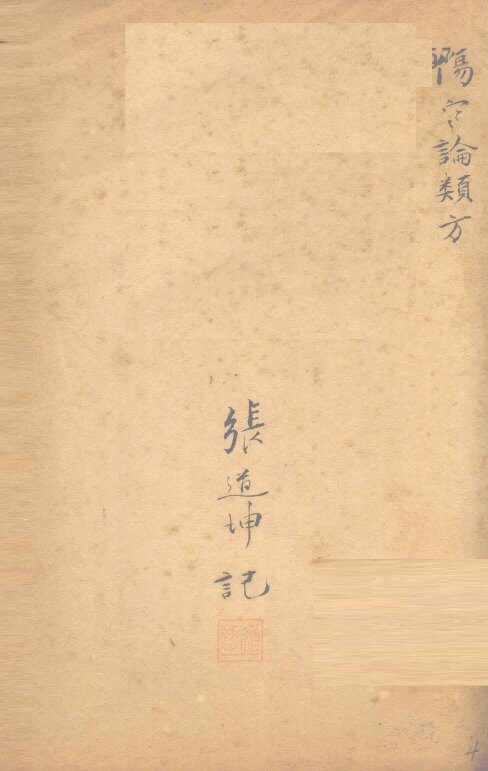 傷寒論類方
張道坤記